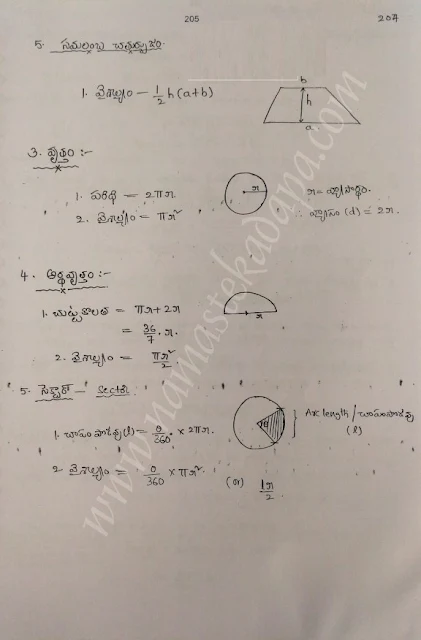 205
207
5. సమలంబ చతుర్భుజం
1. వైశాల్యం - 1/2 h (a+b)
b
h
a
3. వృత్తం :-
1. పరిధి = 2πr.
2. వైశాల్యం = πr²
r
r = వ్యాసార్థం.
వ్యాసం (d) = 2r.
4. అర్థవృత్తం :-
1. చుట్టుకొలత = πr + 2r
= 36/7 . r.
2. వైశాల్యం = πr²/2
r
5. సెక్టార్ - Sector
1. చాపం పొడవు (l) = θ/360° × 2πr.
Arc length / చాపంపొడవు
(l)
2 వైశాల్యం = θ/360 × πr² (or) lr/2
www.namastekadapa.com